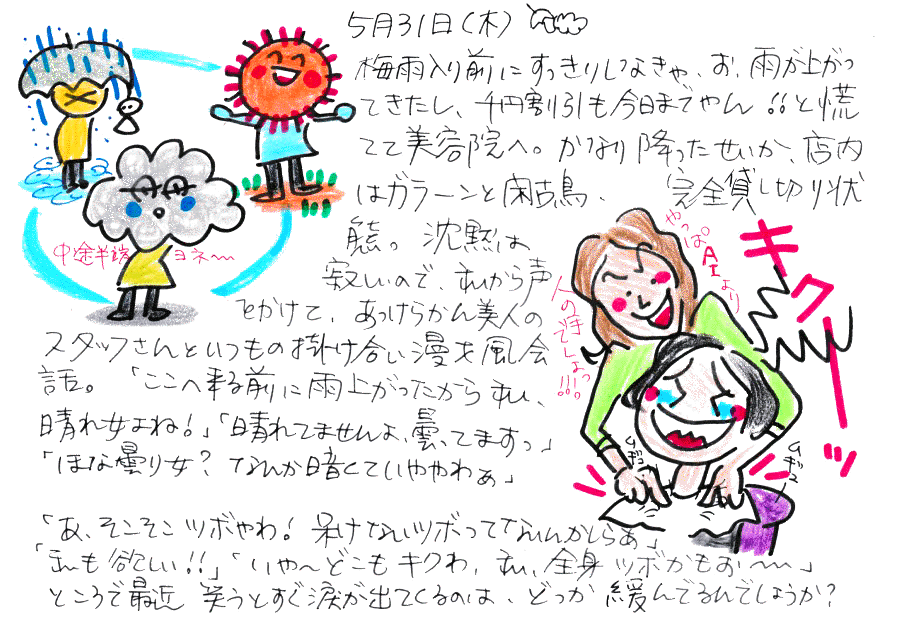 5月31日(木)
梅雨入り前にすっきりしなきゃ、お、雨が上がっ
てきたし、千円割引も今日までやん!!と慌
てて美容院へ。かなり降ったせいか、店内
はガラーンと閑古鳥、完全貸し切り状
態。沈黙は
寂しいので、私から声
をかけて、あっけらかん美人の
スタッフさんといつもの掛け合い漫才風会
話。「ここへ来る前に雨上がったから私、
晴れ女よね!」「晴れてませんよ、曇ってますっ」
「ほな曇り女?なんか暗くていややわぁ」
「あ、そこそこツボやわ!泣けないツボってないんかしらぁ」
「私も欲しい!!」「いや〜どこもキクわ、私、全身ツボかもぉ〜〜」
ところで最近 笑うとすぐ涙が出てくるのは、どっか緩んでるんでしょうか?
中途半端ヨネ〜
やっぱAIより
人の手でしょっ!!!
キクーッ
ムギュ
ムギュ